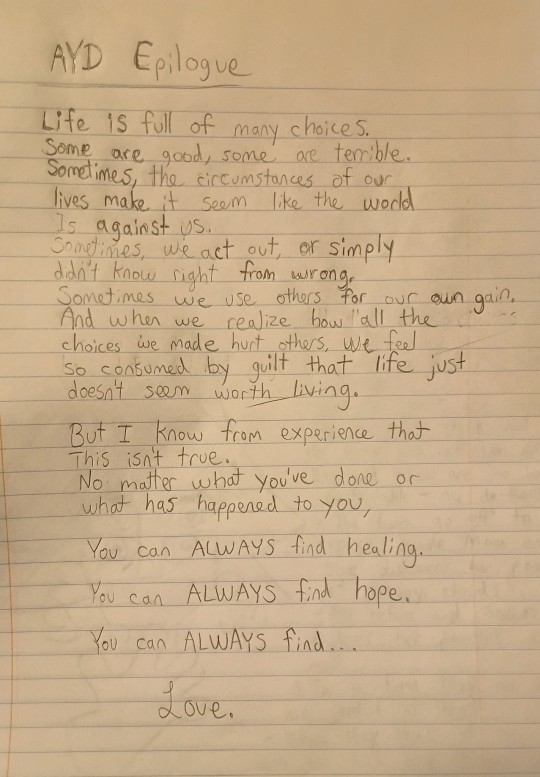 AYD Epilogue
Life is full of many choices.
Some are good, some are terrible.
Sometimes, the circumstances of our
lives make it seem like the world
Is against us.
Sometimes, we act out, or simply
didn't know right from wrong.
Sometimes we use others for our own gain.
And when we realize how all the
choices we made hurt others, we feel
so consumed by guilt that life just
doesn't seem worth living.
But I know from experience that
This isn't true.
No matter what you've done or
what has happened to you,
You can ALWAYS find healing.
You can ALWAYS find hope.
You can ALWAYS find...
Love.